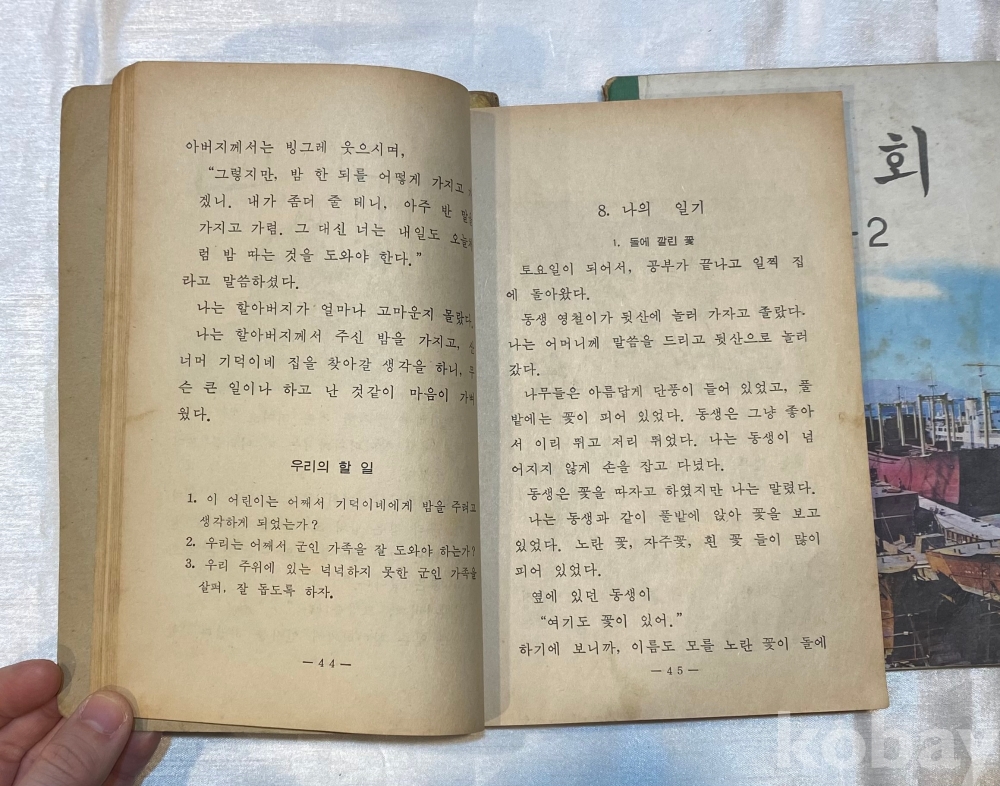 아버지께서는 빙그레 웃으시며,
“그렇지만, 밤 한 되를 어떻게 가지고
겠니. 내가 좀더 줄 테니, 아주 반 말
가지고 가렴. 그 대신 너는 내일도
럼 밤 따는 것을 도와야 한다.”
라고 말씀하셨다.
나는 할아버지가 얼마나 고마운지 몰랐다.
나는 할아버지께서 주신 밤을 가지고,
너머 기덕이네 집을 찾아갈 생각을 하니,
슨 큰 일이나 하고 난 것같이 마음이
웠다.
우리의 할 일
1. 이 어린이는 어째서 기덕이네에게 밤을 주려고
생각하게 되었는가?
2. 우리는 어째서 군인 가족을 잘 도와야 하는가?
3. 우리 주위에 있는 넉넉하지 못한 군인 가족을
살펴, 잘 돕도록 하자.
— 44 —
8. 나의 일기
1. 돌에 깔린 꽃
토요일이 되어서, 공부가 끝나고 일찍 집
에 돌아왔다.
동생 영철이가 뒷산에 놀러 가자고 졸랐다.
나는 어머니께 말씀을 드리고 뒷산으로 놀러
갔다.
나무들은 아름답게 단풍이 들어 있었고, 풀
밭에는 꽃이 피어 있었다. 동생은 그냥 좋아
서 이리 뛰고 저리 뛰었다. 나는 동생이 넘
어지지 않게 손을 잡고 다녔다.
동생은 꽃을 따자고 하였지만 나는 말렸다.
나는 동생과 같이 풀밭에 앉아 꽃을 보고
있었다. 노란 꽃, 자주꽃, 흰 꽃 들이 많이
피어 있었다.
옆에 있던 동생이
“여기도 꽃이 있어.”
하기에 보니까, 이름도 모를 노란 꽃이 돌에
— 45 —
회
-2
kobay